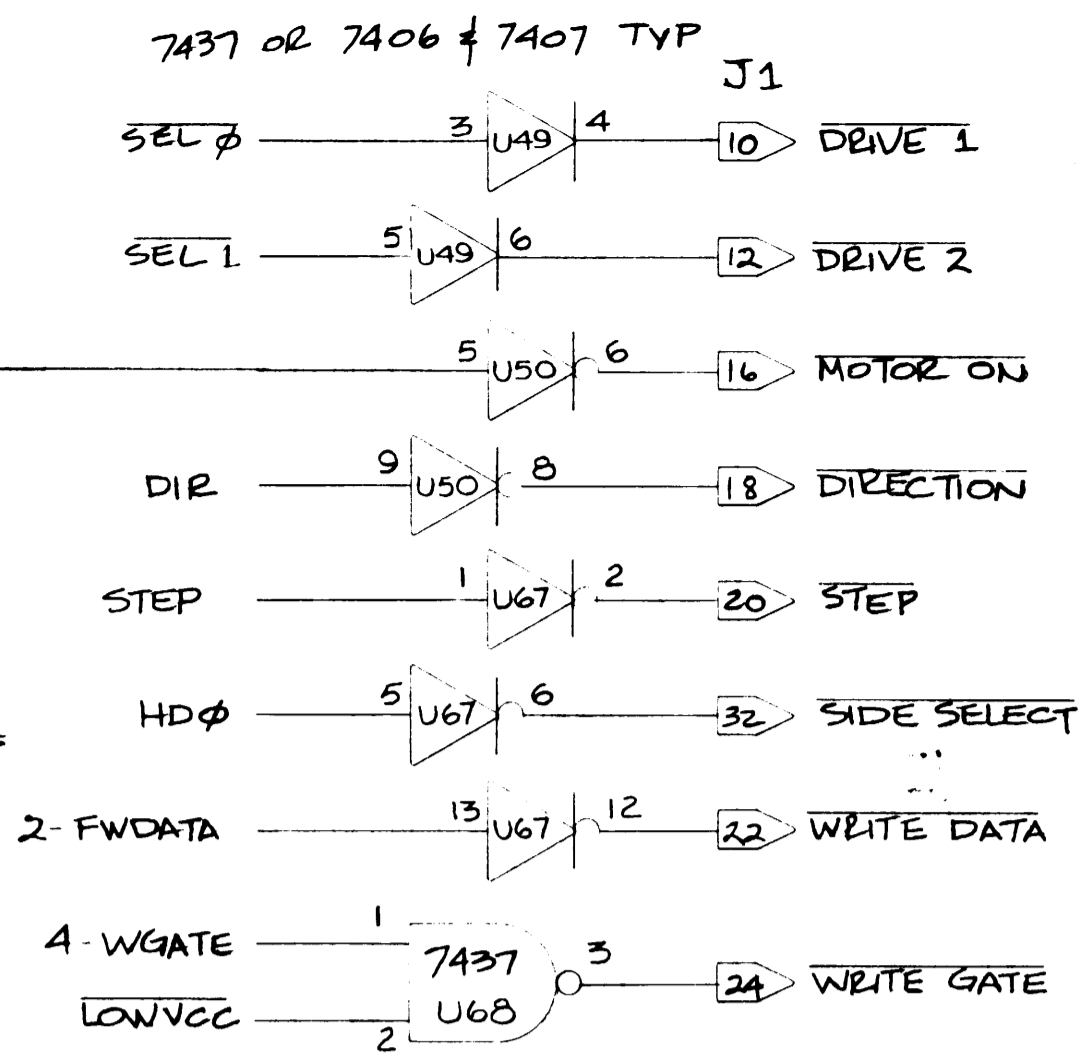 7437 OR 7406 & 7407 TYP
J1
S̅E̅L̅ ̅φ̅ 3 U49 4 10 D̅R̅I̅V̅E̅ ̅1̅
S̅E̅L̅ ̅1̅ 5 U49 6 12 D̅R̅I̅V̅E̅ ̅2̅
5 U50 6 16 M̅O̅T̅O̅R̅ ̅O̅N̅
DIR 9 U50 8 18 D̅I̅R̅E̅C̅T̅I̅O̅N̅
STEP 1 U67 2 20 S̅T̅E̅P̅
HDφ 5 U67 6 32 S̅I̅D̅E̅ ̅S̅E̅L̅E̅C̅T̅
2-FWDATA 13 U67 12 22 W̅R̅I̅T̅E̅ ̅D̅A̅T̅A̅
4-WGATE 1 7437 3 24 W̅R̅I̅T̅E̅ ̅G̅A̅T̅E̅
L̅O̅W̅V̅C̅C̅ 2 U68